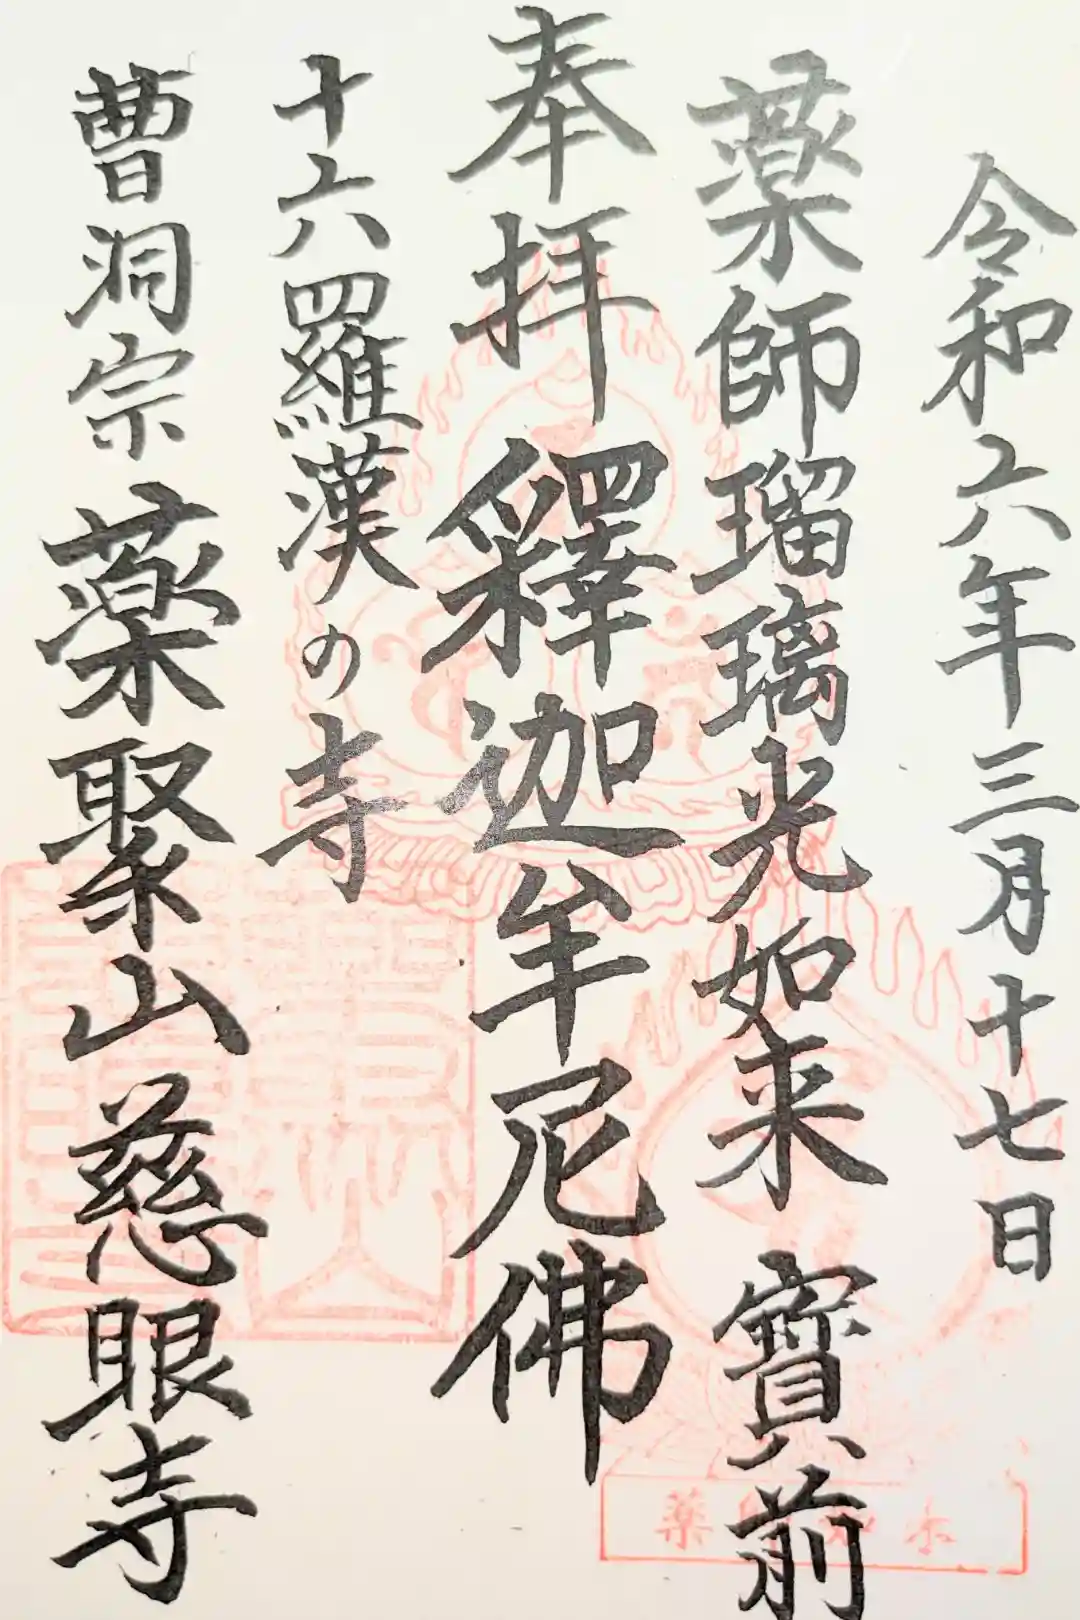 令和六年三月十七日
薬師瑠璃光如来 寶前
奉拝 釋迦牟尼佛
十六羅漢の寺
曹洞宗 薬聚山 慈眼寺